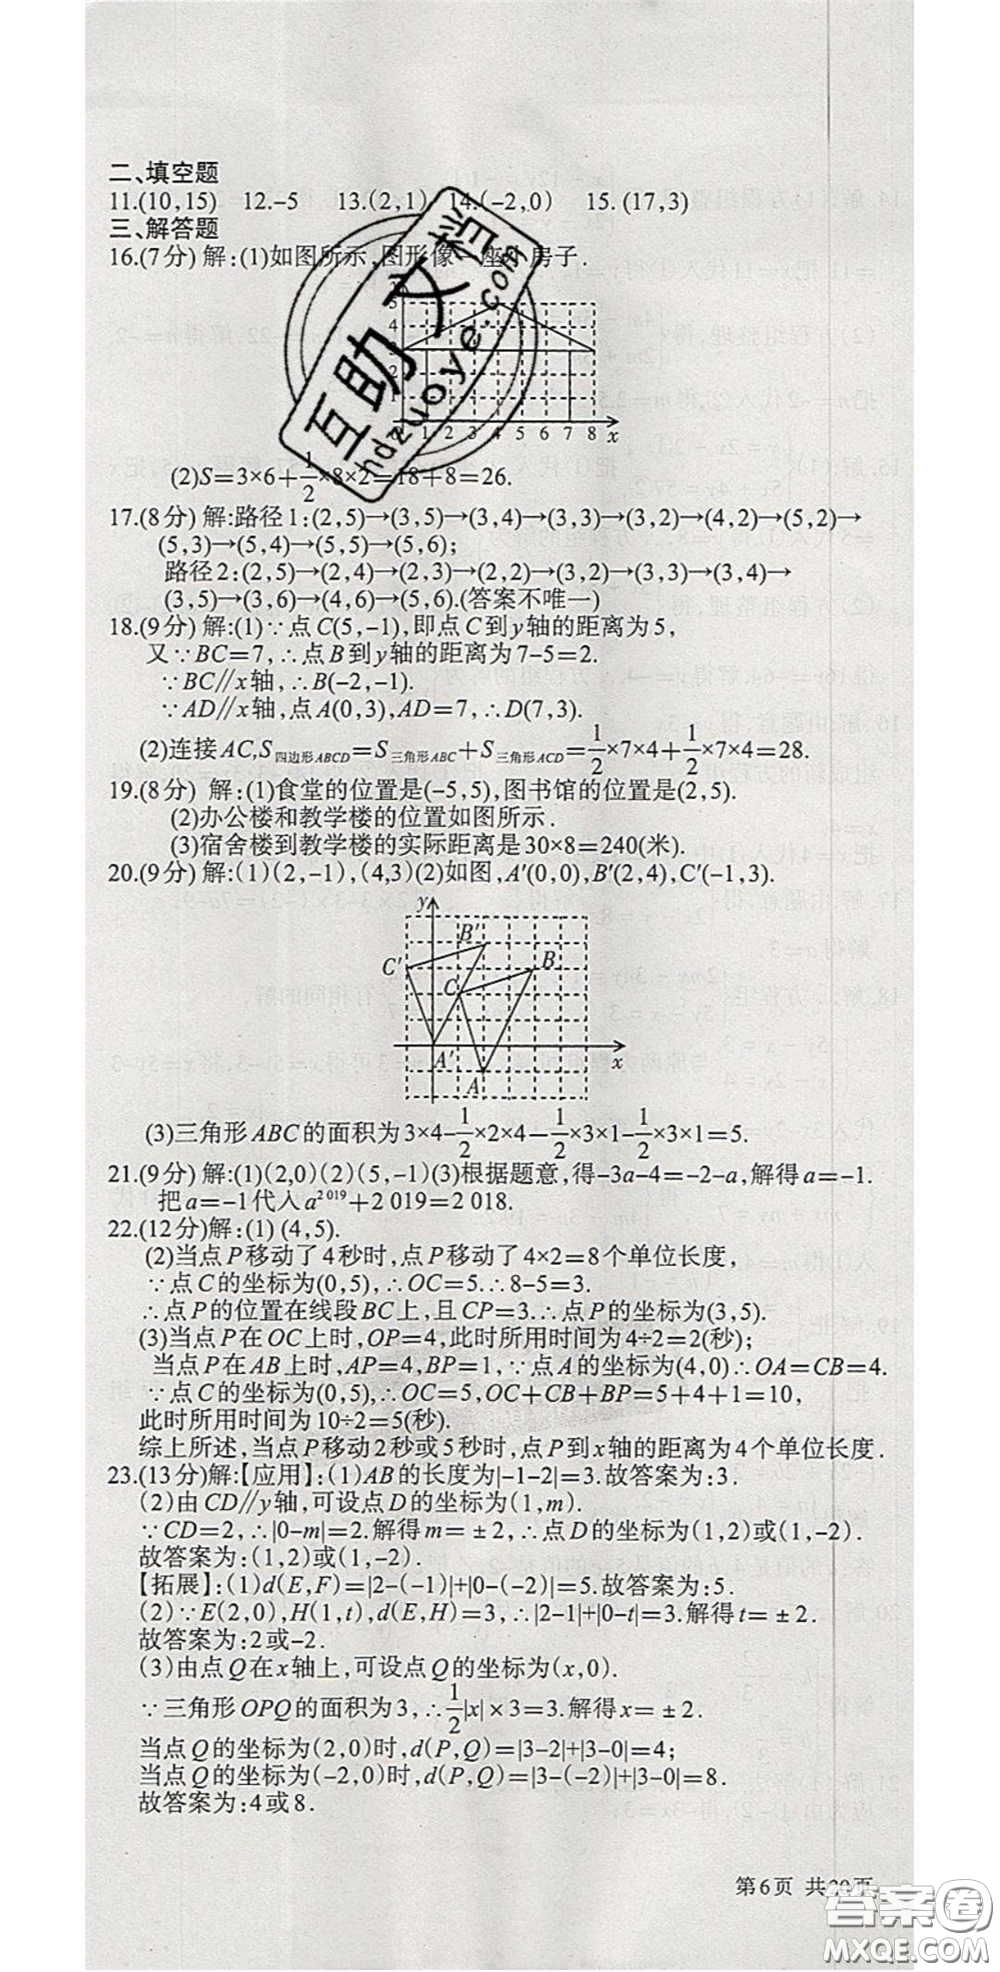 二、填空题
11.(10,15) 12.-5 13.(2,1) 14.(-2,0) 15.(17,3)
三、解答题
16.(7分) 解:(1)如图所示,图形像一座 房子.
5
4
3
1
1 2 3 4 5 6 7 8 x
(2)S=3×6+1/2×8×2=18+8=26.
17.(8分) 解:路径1:(2,5)→(3,5)→(3,4)→(3,3)→(3,2)→(4,2)→(5,2)→
(5,3)→(5,4)→(5,5)→(5,6);
路径2:(2,5)→(2,4)→(2,3)→(2,2)→(3,2)→(3,3)→(3,4)→
(3,5)→(3,6)→(4,6)→(5,6).(答案不唯一)
18.(9分) 解:(1)∵点C(5,-1),即点C到y轴的距离为5,
又∵BC=7,∴点B到y轴的距离为7-5=2.
∵BC∥x轴,∴B(-2,-1).
∵AD∥x轴,点A(0,3),AD=7,∴D(7,3).
(2)连接AC,S四边形ABCD=S三角形ABC+S三角形ACD=1/2×7×4+1/2×7×4=28.
19.(8分) 解:(1)食堂的位置是(-5,5),图书馆的位置是(2,5).
(2)办公楼和教学楼的位置如图所示.
(3)宿舍楼到教学楼的实际距离是30×8=240(米).
20.(9分) 解:(1)(2,-1),(4,3)(2)如图,A′(0,0),B′(2,4),C′(-1,3).
y
B′
C′ B
C
A′ x
A
(3)三角形ABC的面积为3×4-1/2×2×4-1/2×3×1-1/2×3×1=5.
21.(9分) 解:(1)(2,0)(2)(5,-1)(3)根据题意,得-3a-4=-2-a,解得a=-1.
把a=-1代入a^2 019+2 019=2 018.
22.(12分)解:(1) (4,5).
(2)当点P移动了4秒时,点P移动了4×2=8个单位长度,
∵点C的坐标为(0,5),∴OC=5.∴8-5=3.
∴点P的位置在线段BC上,且CP=3.∴点P的坐标为(3,5).
(3)当点P在OC上时,OP=4,此时所用时间为4÷2=2(秒);
当点P在AB上时,AP=4,BP=1,∵点A的坐标为(4,0)∴OA=CB=4.
∵点C的坐标为(0,5),∴OC=5,OC+CB+BP=5+4+1=10,
此时所用时间为10÷2=5(秒).
综上所述,当点P移动2秒或5秒时,点P到x轴的距离为4个单位长度.
23.(13分)解:【应用】:(1)AB的长度为|-1-2|=3.故答案为:3.
(2)由CD∥y轴,可设点D的坐标为(1,m).
∵CD=2,∴|0-m|=2.解得m=±2,∴点D的坐标为(1,2)或(1,-2).
故答案为:(1,2)或(1,-2).
【拓展】:(1)d(E,F)=|2-(-1)|+|0-(-2)|=5.故答案为:5.
(2)∵E(2,0),H(1,t),d(E,H)=3,∴|2-1|+|0-t|=3.解得t=±2.
故答案为:2或-2.
(3)由点Q在x轴上,可设点Q的坐标为(x,0).
∵三角形OPQ的面积为3,∴1/2|x|×3=3.解得x=±2.
当点Q的坐标为(2,0)时,d(P,Q)=|3-2|+|3-0|=4;
当点Q的坐标为(-2,0)时,d(P,Q)=|3-(-2)|+|3-0|=8.
故答案为:4或8.
第6页 共20页
互助文档
hdzuoye.com
答案圈
MXQE.COM